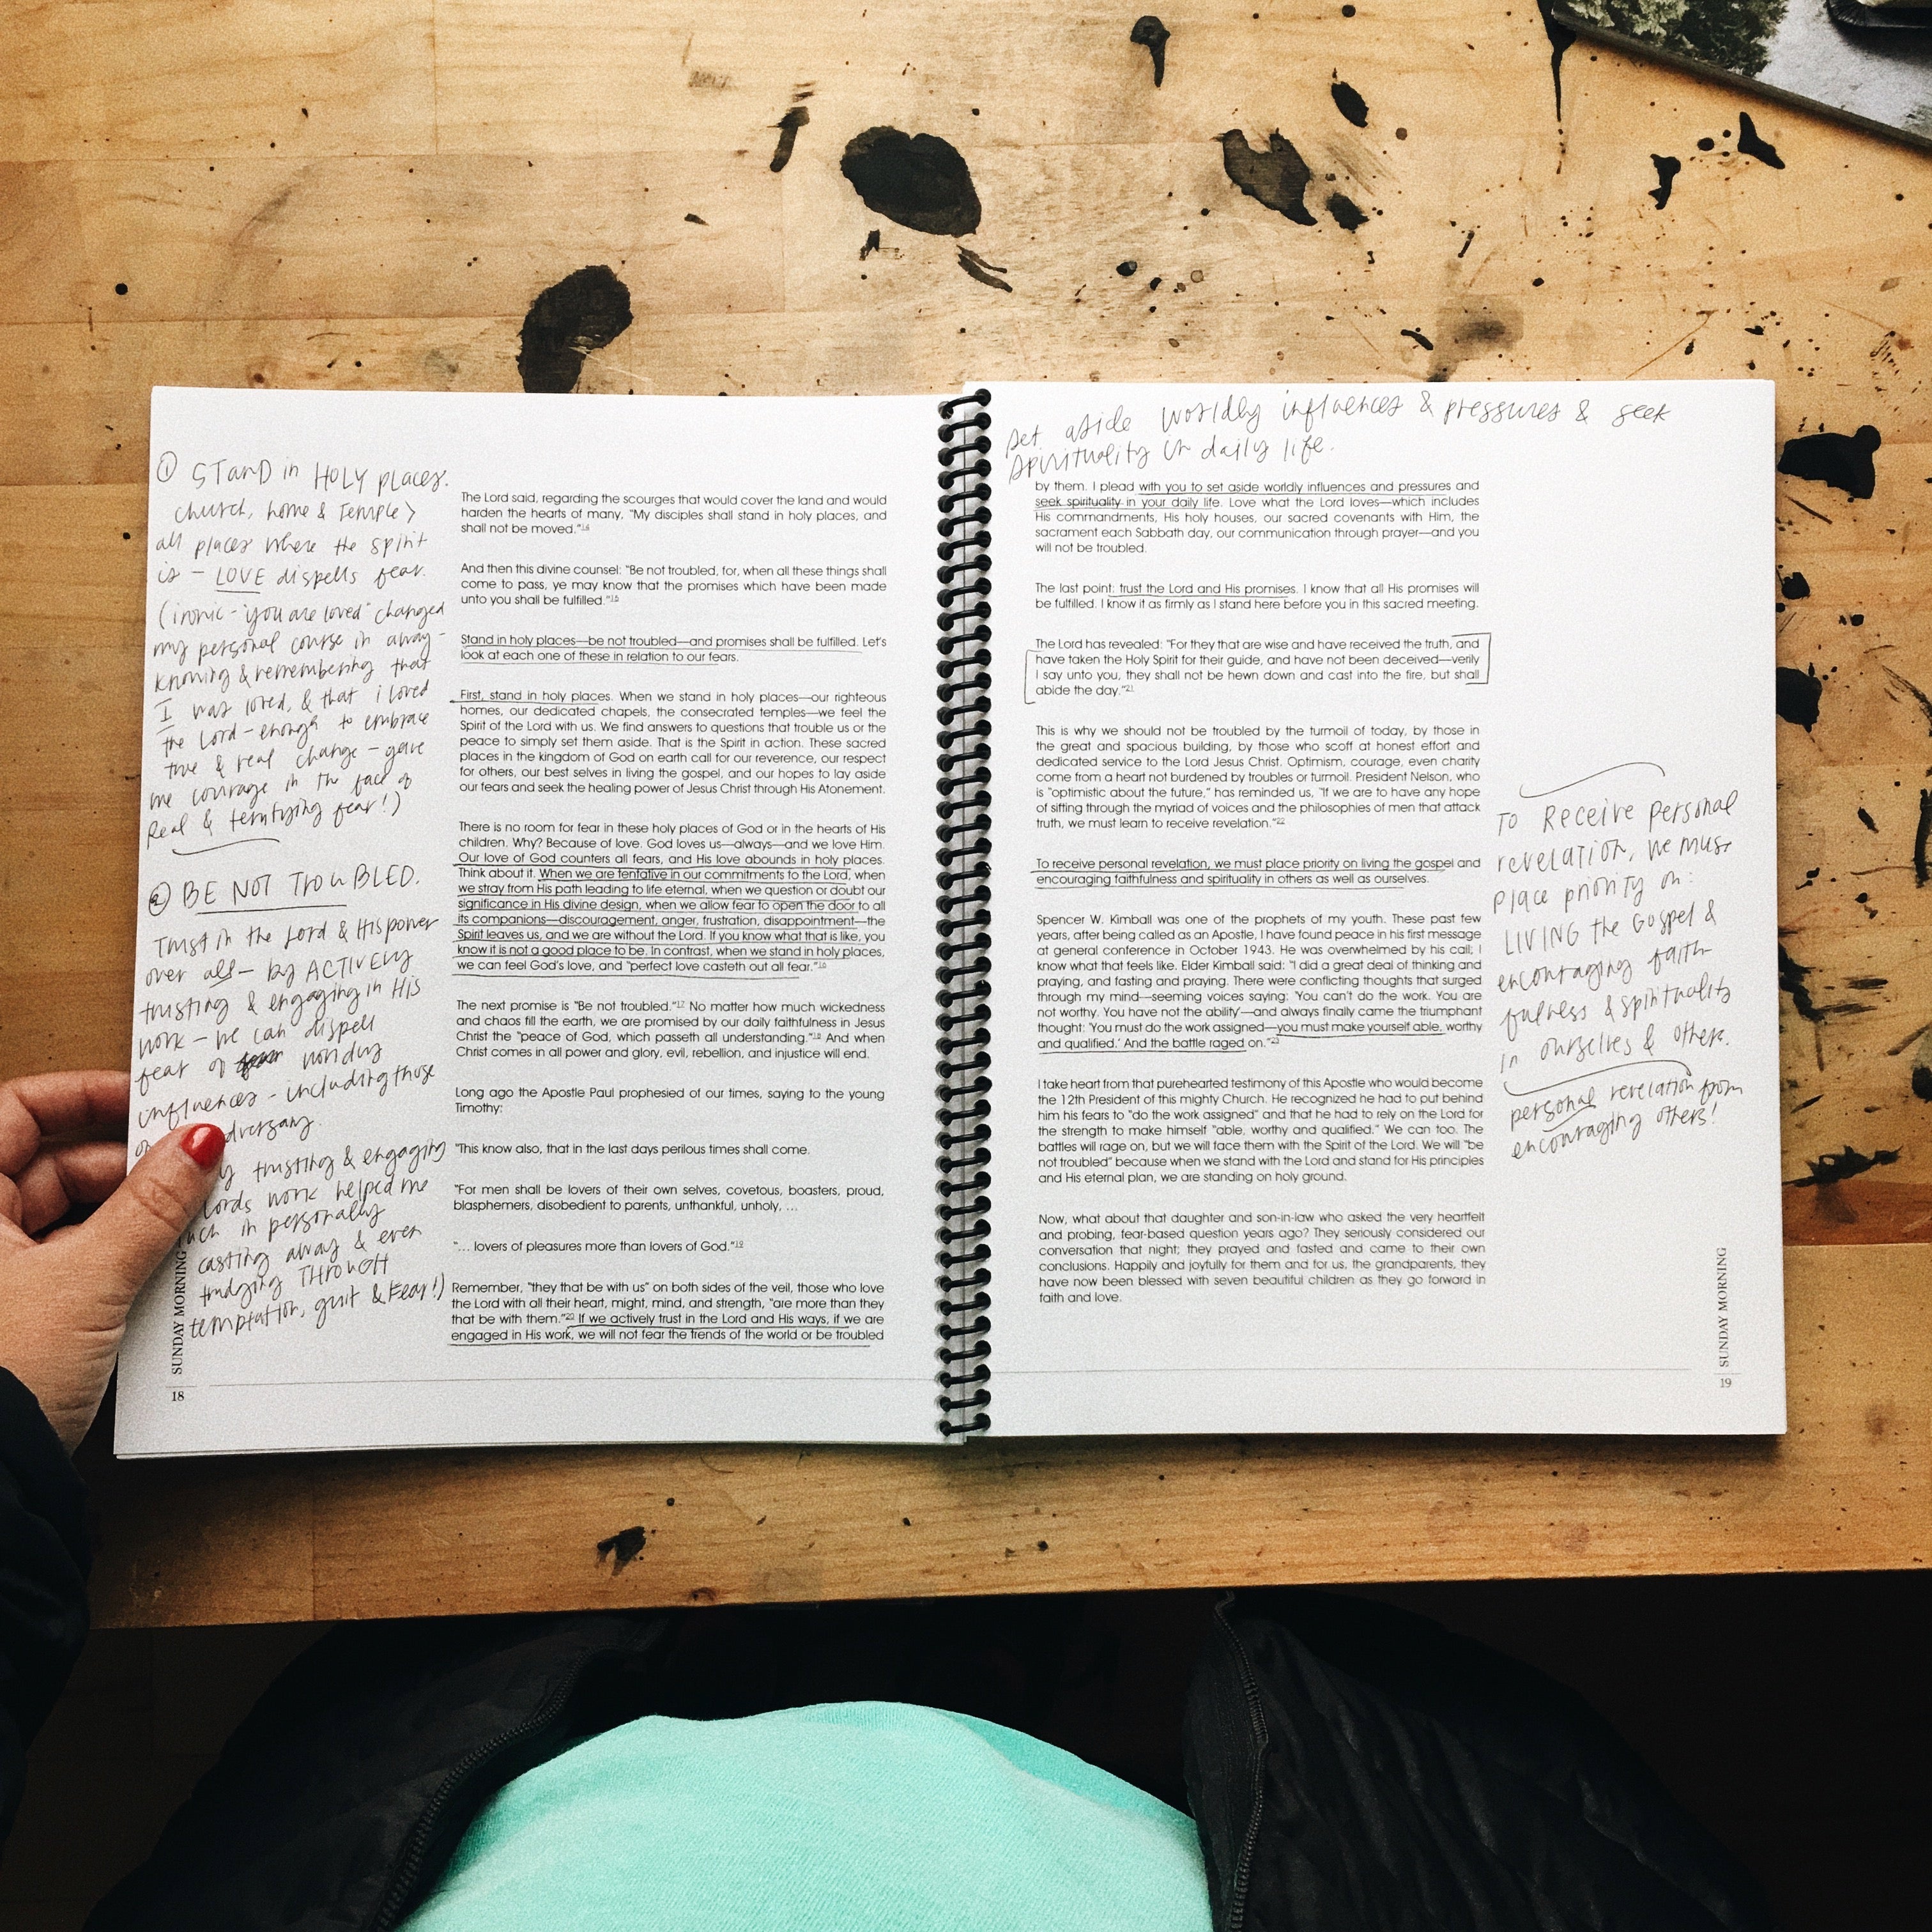 ① STAND in HOLY places.
church, home & temple >
all places where the spirit
is - LOVE dispells fear.
(ironic - "you are loved" changed
my personal course in away -
knowing & remembering that
I was loved, & that i loved
the Lord - enough to embrace
true & real change - gave
me courage in the face of
Real & terrifying fear!)
② BE NOT TROUBLED.
Trust in the Lord & His power
over all - by ACTIVELY
trusting & engaging in His
work - we can dispell
fear of worldly
influences - including those
trusting & engaging
Lords work helped me
in personally
casting away & even
trudging THROUGH
temptation, guilt & Fear!)
The Lord said, regarding the scourges that would cover the land and would
harden the hearts of many, "My disciples shall stand in holy places, and
shall not be moved."14
And then this divine counsel: "Be not troubled, for, when all these things shall
come to pass, ye may know that the promises which have been made
unto you shall be fulfilled."15
Stand in holy places—be not troubled—and promises shall be fulfilled. Let's
look at each one of these in relation to our fears.
First, stand in holy places. When we stand in holy places—our righteous
homes, our dedicated chapels, the consecrated temples—we feel the
Spirit of the Lord with us. We find answers to questions that trouble us or the
peace to simply set them aside. That is the Spirit in action. These sacred
places in the kingdom of God on earth call for our reverence, our respect
for others, our best selves in living the gospel, and our hopes to lay aside
our fears and seek the healing power of Jesus Christ through His Atonement.
There is no room for fear in these holy places of God or in the hearts of His
children. Why? Because of love. God loves us—always—and we love Him.
Our love of God counters all fears, and His love abounds in holy places.
Think about it. When we are tentative in our commitments to the Lord, when
we stray from His path leading to life eternal, when we question or doubt our
significance in His divine design, when we allow fear to open the door to all
its companions—discouragement, anger, frustration, disappointment—the
Spirit leaves us, and we are without the Lord. If you know what that is like, you
know it is not a good place to be. In contrast, when we stand in holy places,
we can feel God's love, and "perfect love casteth out all fear."16
The next promise is "Be not troubled."17 No matter how much wickedness
and chaos fill the earth, we are promised by our daily faithfulness in Jesus
Christ the "peace of God, which passeth all understanding."18 And when
Christ comes in all power and glory, evil, rebellion, and injustice will end.
Long ago the Apostle Paul prophesied of our times, saying to the young
Timothy:
"This know also, that in the last days perilous times shall come.
"For men shall be lovers of their own selves, covetous, boasters, proud,
blasphemers, disobedient to parents, unthankful, unholy, …
"… lovers of pleasures more than lovers of God."19
Remember, "they that be with us" on both sides of the veil, those who love
the Lord with all their heart, might, mind, and strength, "are more than they
that be with them."20 If we actively trust in the Lord and His ways, if we are
engaged in His work, we will not fear the trends of the world or be troubled
SUNDAY MORNING
18
set aside worldly influences & pressures & seek
spirituality in daily life.
by them. I plead with you to set aside worldly influences and pressures and
seek spirituality in your daily life. Love what the Lord loves—which includes
His commandments, His holy houses, our sacred covenants with Him, the
sacrament each Sabbath day, our communication through prayer—and you
will not be troubled.
The last point: trust the Lord and His promises. I know that all His promises will
be fulfilled. I know it as firmly as I stand here before you in this sacred meeting.
The Lord has revealed: "For they that are wise and have received the truth, and
have taken the Holy Spirit for their guide, and have not been deceived—verily
I say unto you, they shall not be hewn down and cast into the fire, but shall
abide the day."21
This is why we should not be troubled by the turmoil of today, by those in
the great and spacious building, by those who scoff at honest effort and
dedicated service to the Lord Jesus Christ. Optimism, courage, even charity
come from a heart not burdened by troubles or turmoil. President Nelson, who
is "optimistic about the future," has reminded us, "If we are to have any hope
of sifting through the myriad of voices and the philosophies of men that attack
truth, we must learn to receive revelation."22
To receive personal revelation, we must place priority on living the gospel and
encouraging faithfulness and spirituality in others as well as ourselves.
Spencer W. Kimball was one of the prophets of my youth. These past few
years, after being called as an Apostle, I have found peace in his first message
at general conference in October 1943. He was overwhelmed by his call; I
know what that feels like. Elder Kimball said: "I did a great deal of thinking and
praying, and fasting and praying. There were conflicting thoughts that surged
through my mind—seeming voices saying: 'You can't do the work. You are
not worthy. You have not the ability'—and always finally came the triumphant
thought: 'You must do the work assigned—you must make yourself able, worthy
and qualified.' And the battle raged on."23
I take heart from that purehearted testimony of this Apostle who would become
the 12th President of this mighty Church. He recognized he had to put behind
him his fears to "do the work assigned" and that he had to rely on the Lord for
the strength to make himself "able, worthy and qualified." We can too. The
battles will rage on, but we will face them with the Spirit of the Lord. We will "be
not troubled" because when we stand with the Lord and stand for His principles
and His eternal plan, we are standing on holy ground.
Now, what about that daughter and son-in-law who asked the very heartfelt
and probing, fear-based question years ago? They seriously considered our
conversation that night; they prayed and fasted and came to their own
conclusions. Happily and joyfully for them and for us, the grandparents, they
have now been blessed with seven beautiful children as they go forward in
faith and love.
To Receive personal
revelation, we must
place priority on:
LIVING the Gospel &
encouraging faith-
fulness & spirituality
in ourselves & others.
personal revelation from
encouraging others!
SUNDAY MORNING
19